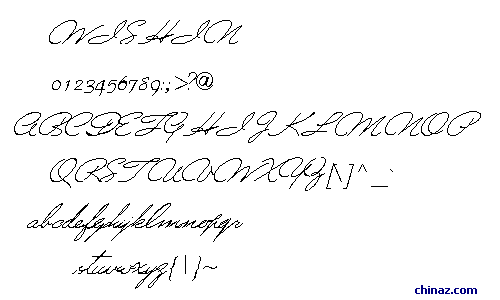 WISHIN
0123456789:;>?@
ABCDEFGHIJKLMNOP
QRSTUVWXYZ[\]^_`
abcdefghijklmnopqr
stuvwxyz{|}~
chinaz.com